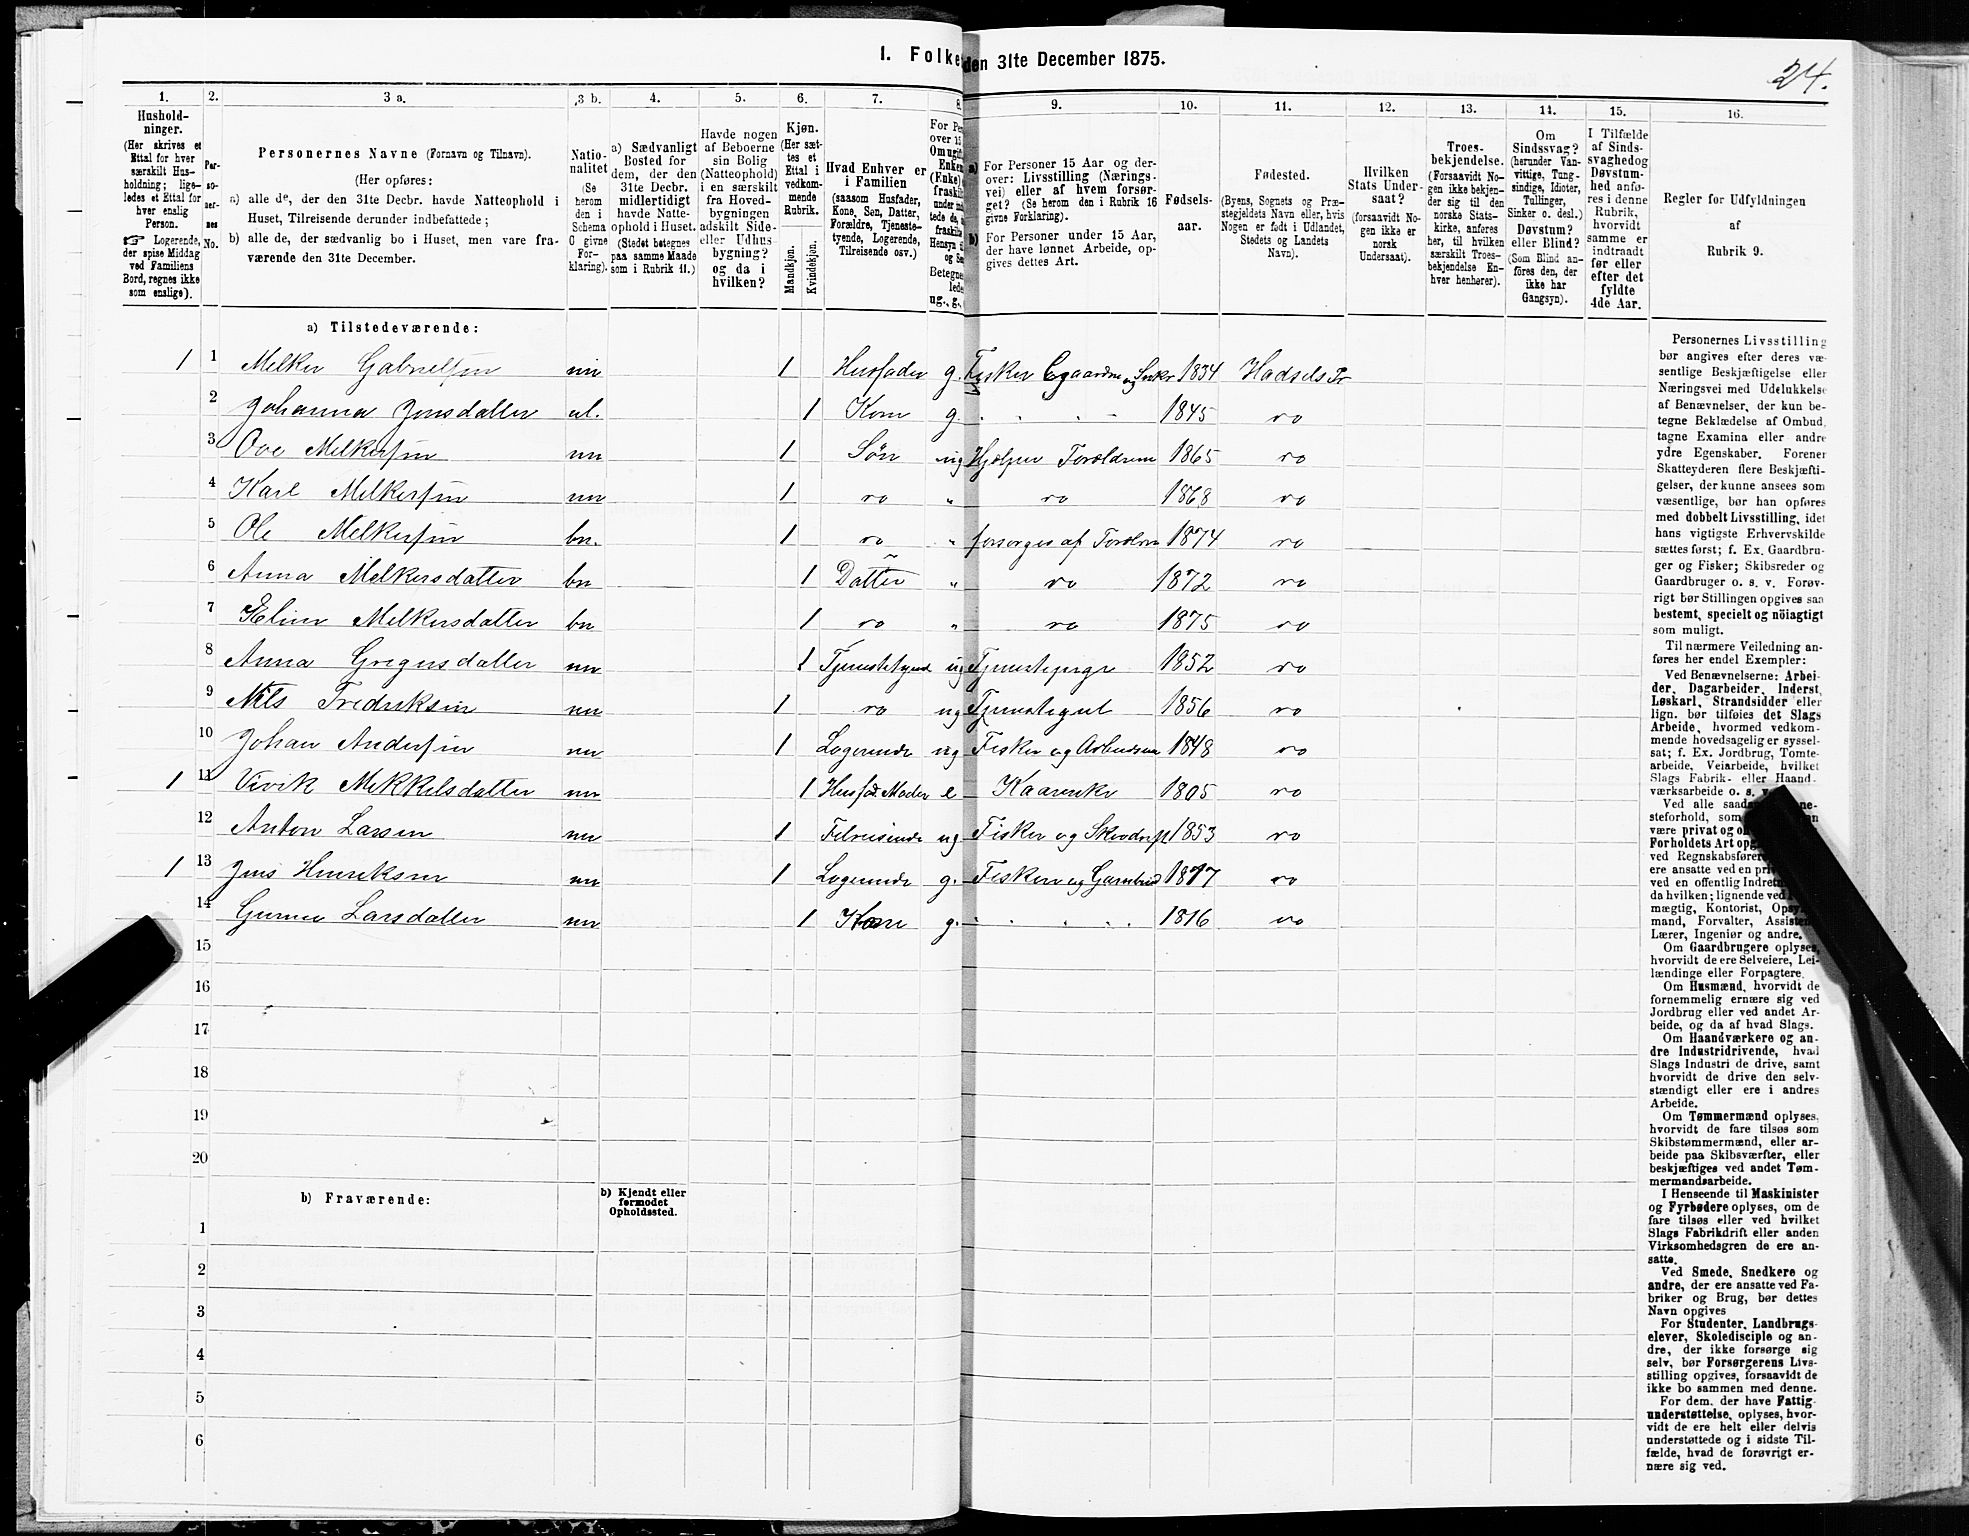 24.
I. Folke den 31te December 1875.
1. 2. 3 a. 3 b. 4. 5. 6. 7. 8. 9. 10. 11. 12. 13. 14. 15. 16.
Hushold-
ninger.
(Her skrives et
Ettal for hver
særskilt Hus-
holdning; lige-
ledes et Ettal for
hver enslig
Person.
☞ Logerende,
der spise Middag
ved Familiens
Bord, regnes ikke
som enslige).
Per-
so-
ner-
nes
No.
Personernes Navne (Fornavn og Tilnavn).
(Her opføres:
a) alle de, der den 31te Decbr. havde Natteophold i
Huset, Tilreisende derunder indbefattede;
b) alle de, der sædvanlig bo i Huset, men vare fra-
værende den 31te December.
Natio-
nalitet
(Se
herom
den i
Schema
G givne
For-
klaring).
a) Sædvanligt
Bosted for
dem, der den
31te Decbr.
midlertidigt
havde Natte-
ophold i Huset.
(Stedet betegnes
paa samme Maade
som i Rubrik 11.)
Havde nogen
af Beboerne
sin Bolig
(Natteophold)
i en særskilt
fra Hoved-
bygningen
adskilt Side-
eller Udhus-
bygning?
og da i
hvilken?
Kjøn.
(Her sæt-
tes et
Ettal i
vedkom-
mende
Rubrik.
Mandkjøn.
Kvindekjøn.
Hvad Enhver er
i Familien
(saasom Husfader,
Kone, Søn, Datter,
Forældre, Tjeneste-
tyende, Logerende,
Tilreisende osv.)
For Pe
over 15
Om ugift
Enken
(Enke)
fraskil
Betegne
lede
ug., g.,
a) For Personer 15 Aar og der-
over: Livsstilling (Nærings-
vei) eller af hvem forsør-
get? (Se herom den i Rubrik 16
givne Forklaring).
b) For Personer under 15 Aar,
der have lønnet Arbeide, op-
gives dettes Art.
Fødsels-
aar.
Fødested.
(Byens, Sognets og Præ-
stegjeldets Navn eller, hvis
Nogen er født i Udlandet,
Stedets og Landets
Navn).
Hvilken
Stats Under-
saat?
(forsaavidt No-
gen ikke er
norsk
Undersaat).
Troes-
bekjendelse.
(Forsaavidt No-
gen ikke bekjen-
der sig til den
norske Stats-
kirke, anføres
her, til hvilken
særskilt Troes-
bekjendelse En-
hver henhører).
Om
Sindssvag?
(herunder Van-
vittige, Tung-
sindige, Idioter,
Tullinger,
Sinker o. desl.)
Døvstum?
eller Blind?
(Som Blind an-
føres den, der
ikke har
Gangsyn).
I Tilfælde
af Sinds-
svaghed og
Døvstum-
hed anfø-
res i denne
Rubrik,
hvorvidt
samme er
indtraadt
før eller
efter det
fyldte
4de Aar.
Regler for Udfyldningen
af
Rubrik 9.
a) Tilstedeværende:
1 1 Melker Gabrielsen nn 1 Husfader g. Fisker Gaardm og 1834 Hadsels Pr
2 Johanna Jonsdatter 1 Kone g. 1845 do
3 Ove Melkersen nn 1 Søn ug Hjelper Forældrene 1865 do
4 Karl Melkersen nn 1 do " do 1868 do
5 Ole Melkersen bn. 1 do " forsørges af Foreldre 1874 do
6 Anna Melkersdatter bn 1 Datter " do 1872 do
7 Eline Melkersdatter bn 1 do " do 1875 do
8 Anna Gregersdatter nn 1 Tjenestetyend ug Tjenestepige 1852 do
9 Nils Fredriksen nn 1 do ug Tjenestegut 1856 do
10 Johan Andersen nn 1 Logerende ug Fisker og Arbeidsm 1848 do
1 11 Vivik Mekkelsdatter nn 1 Husfad. Moder e Kaarenke 1805 do
12 Anton Larsen nn 1 Tilreisende ug Fisker og 1853 do
1 13 Jens Henriksen nn 1 Logerende g. Fisker og 1817 do
14 Larsdatter nn 1 Kone g. 1816 do
15
16
17
18
19
20
b) Fraværende:
b) Kjendt eller
formodet
Opholdssted.
1
2
3
4
5
6
Personernes Livsstilling
bør angives efter deres væ-
sentlige Beskjæftigelse eller
Næringsvei med Udelukkelse
af Benævnelser, der kun be-
tegne Beklædelse af Ombud,
tagne Examina eller andre
ydre Egenskaber. Forener
Skatteyderen flere Beskjæfti-
gelser, der kunne ansees som
væsentlige, bør han opføres
med dobbelt Livsstilling, idet
hans vigtigste Erhvervskilde
sættes først; f. Ex. Gaardbru-
ger og Fisker; Skibsreder og
Gaardbruger o. s. v. Forøv-
rigt bør Stillingen opgives saa
bestemt, specielt og nöiagtigt
som muligt.
Til nærmere Veiledning an-
føres her endel Exempler:
Ved Benævnelserne: Arbei-
der, Dagarbeider, Inderst,
Løskarl, Strandsidder eller
lign. bør tilføies det Slags
Arbeide, hvormed vedkom-
mende hovedsagelig er syssel-
sat; f. Ex. Jordbrug, Tomte-
arbeide, Veiarbeide, hvilket
Slags Fabrik- eller Haand-
værksarbeide o. s. v.
Ved alle
steforhold, som
være privat og
Forholdets Art
ved Regnskabsfører
ere ansatte ved en
ved en offentlig
da hvilken; lignende ved
mægtig, Kontorist,
mand, Forvalter,
Lærer, Ingeniør og andre.
Om Gaardbrugere oplyses,
hvorvidt de ere Selveiere, Lei-
lændinge eller Forpagtere.
Om Husmænd, hvorvidt de
fornemmelig ernære sig ved
Jordbrug eller ved andet Ar-
beide, og da af hvad Slags.
Om Haandværkere og an-
dre Industridrivende, hvad
Slags Industri de drive, samt
hvorvidt de drive den selv-
stændigt eller ere i andres
Arbeide.
Om Tømmermænd oplyses,
hvorvidt de fare tilsøs som
Skibstømmermænd, eller ar-
beide paa Skibsværfter, eller
beskjæftiges ved andet Tøm-
mermandsarbeide.
I Henseende til Maskinister
og Fyrbødere oplyses, om de
fare tilsøs eller ved hvilket
Slags Fabrikdrift eller anden
Virksomhedsgren de ere an-
satte.
Ved Smede, Snedkere og
andre, der ere ansatte ved Fa-
briker og Brug, bør dettes
Navn opgives
For Studenter, Landbrugs-
elever, Skoledisciple og an-
dre, der ikke forsørge sig
selv, bør Forsørgerens Livs-
stilling opgives, forsaavidt de
ikke bo sammen med denne.
For dem, der have Fattig-
understøttelse, oplyses, hvor-
vidt de ere helt eller delvis
understøttede og i sidste Til-
fælde, hvad de forøvrigt er-
nære sig ved.